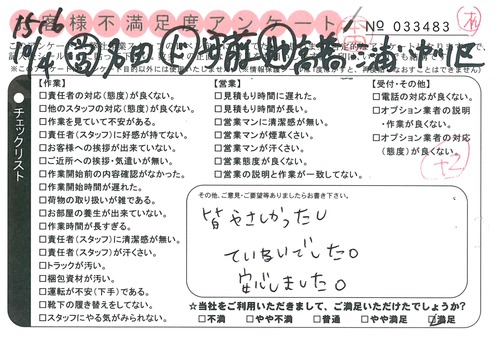 お客様不満足度アンケート
No 033483
15-6
チェックリスト
【作業】
□責任者の対応(態度)が良くない。
□他のスタッフの対応(態度)が良くない。
□作業を見ていて不安がある。
□責任者(スタッフ)に好感が持てない。
□お客様への挨拶が出来ていない。
□ご近所への挨拶・気遣いが無い。
□作業開始前の内容確認がなかった。
□作業開始時間が遅れた。
□荷物の取り扱いが雑である。
□お部屋の養生が出来ていない。
□作業時間が長すぎる。
□責任者(スタッフ)に清潔感が無い。
□責任者(スタッフ)が汗くさい。
□トラックが汚い。
□梱包資材が汚い。
□運転が不安(下手)である。
□靴下の履き替えをしてない。
□スタッフにやる気がみられない。
【営業】
□見積もり時間に遅れた。
□見積もり時間が長い。
□営業マンに清潔感が無い。
□営業マンが煙草くさい。
□営業マンが汗くさい。
□営業態度が良くない。
□営業の説明と作業が一致してない。
【受付・その他】
□電話の対応が良くない。
□オプション業者の説明
・作業が良くない。
□オプション業者の対応
(態度)が良くない。
+2
その他、ご意見・ご要望等ありましたらお書き下さい。
皆やさしかったし
ていねいでした。
安心しました。
☆当社をご利用いただきまして、ご満足いただけたでしょうか?
□不満 □やや不満 □普通 □やや満足 ☑満足